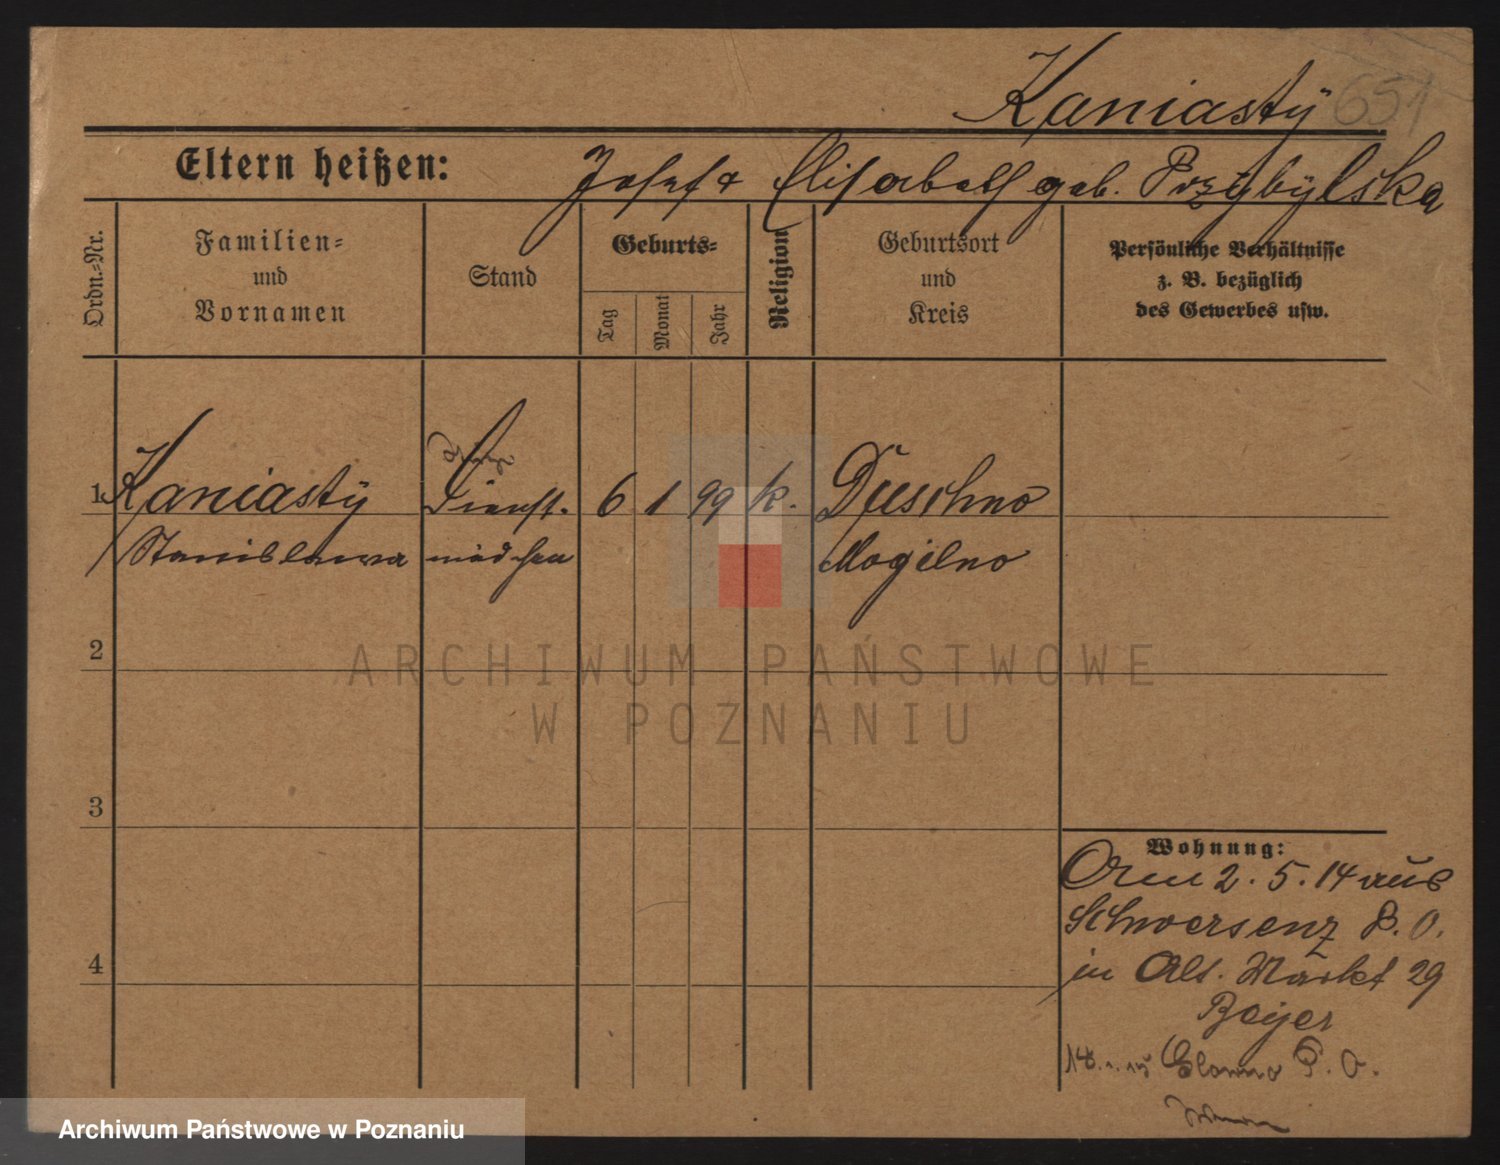 Kaniastÿ 651
Eltern heißen: Josef & Elisabeth geb. Przÿbÿlska
Ordn.-Nr.
Familien-
und
Vornamen
Stand
Geburts-
Tag
Monat
Jahr
Religion
Geburtsort
und
Kreis
Persönliche Verhältnisse
z. B. bezüglich
des Gewerbes usw.
1 Kaniastÿ Dienst- 6 1 99 k. Duschno
Stanislawa mädchen Mogilno
2
3
4
Wohnung:
Am 2. 5. 14 aus
Schwersenz P. O.
in Alt. Markt 29
Beÿer
18. 1. 15 Glowno P. O.
ARCHIWUM PAŃSTWOWE
W POZNANIU
Archiwum Państwowe w Poznaniu